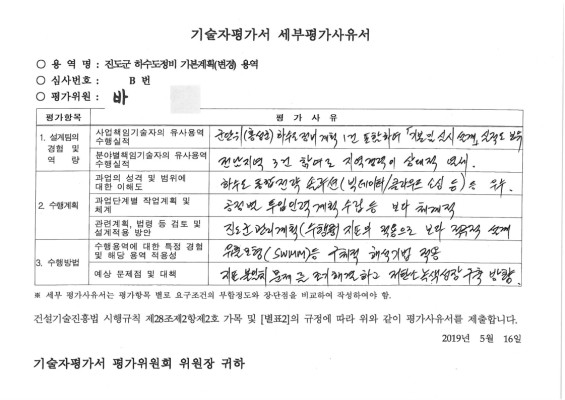 기술자평가서 세부평가사유서
○ 용 역 명 : 진도군 하수도정비 기본계획(변경) 용역
○ 심사번호 : B 번
○ 평가위원 : 바
평가항목
평 가 사 유
1. 설계팀의 경험 및 역 량
사업책임기술자의 유사용역 수행실적
군단위(홍성군) 하수도정비계획 1건 포함하여 기본및실시설계 실적도 보유
분야별책임기술자의 유사용역 수행실적
전남지역 3건 참여로 지역경력이 상대적 열세.
2. 수행계획
과업의 성격 및 범위에 대한 이해도
하수도 통합전략 (빅데이터/클라우드 등)을
과업단계별 작업계획 및 체계
공정별 투입인력계획 수립 등 보다 체계적
관련계획, 법령 등 검토 및 설계적용 방안
진도군 관리계획 적용으로 보다 적극적 설계
3. 수행방법
수행용역에 대한 특정 경험 및 해당 용역 적용성
유출모형(SWMM)등 구체적 해석기법 적용
예상 문제점 및 대책
문제 조기해결하고 저탄소녹색성장구축 방향.
※ 세부 평가사유서는 평가항목 별로 요구조건의 부합정도와 장단점을 비교하여 작성하여야 함.
건설기술진흥법 시행규칙 제28조제2항제2호 가목 및 [별표2]의 규정에 따라 위와 같이 평가사유서를 제출합니다.
2019년 5월 16일
기술자평가서 평가위원회 위원장 귀하